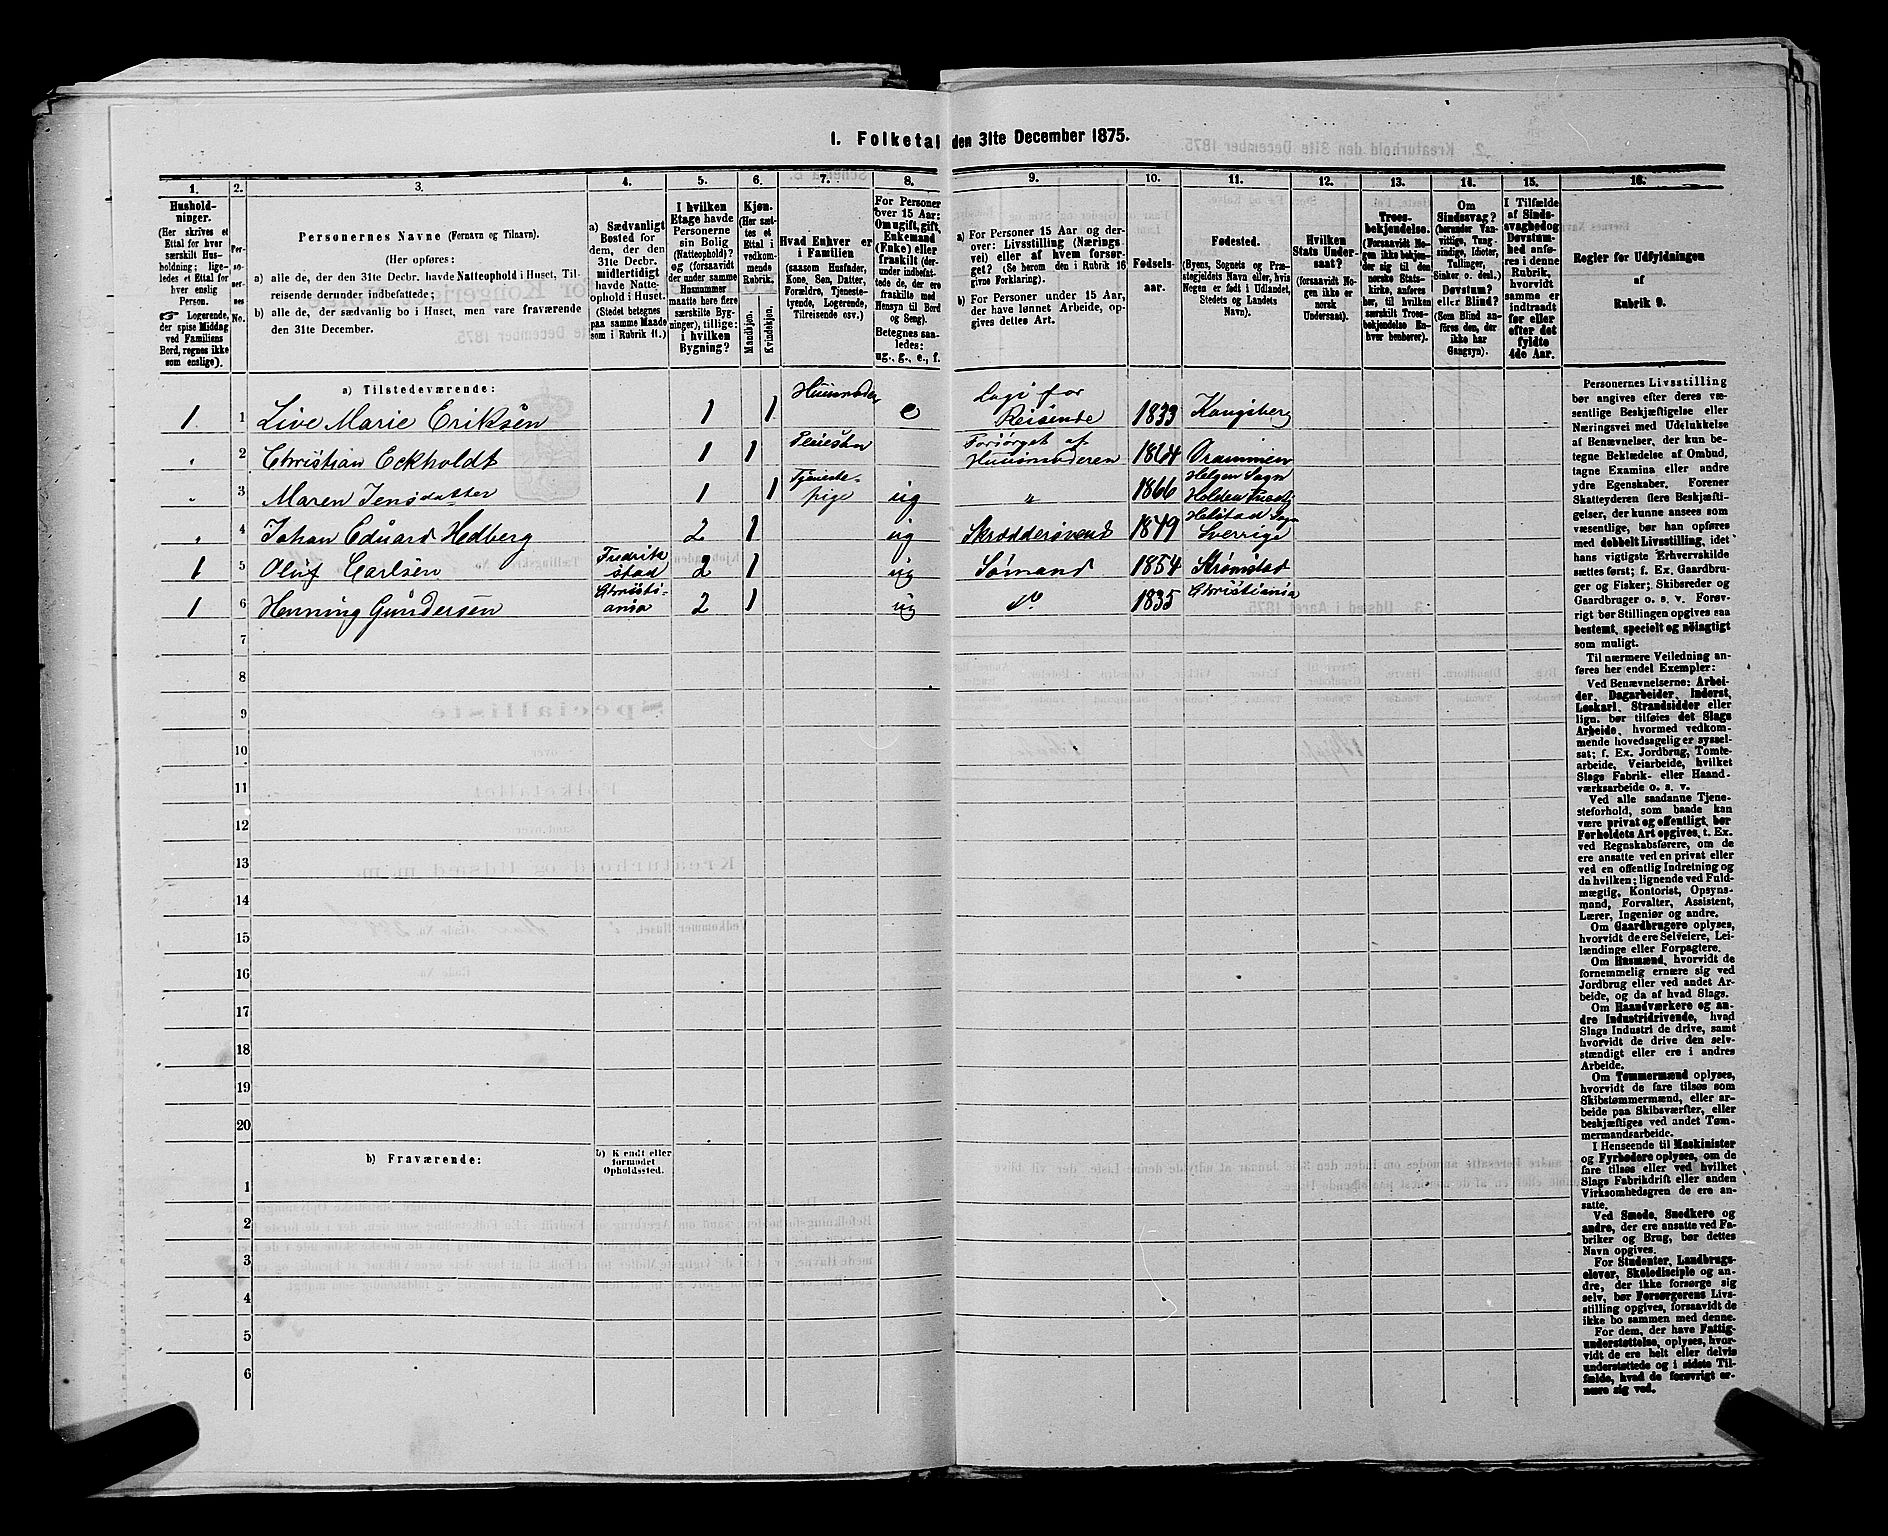 1. Folketal den 31te December 1875.
1. 2. 3. 4. 5. 6. 7. 8. 9. 10. 11. 12. 13. 14. 15. 16.
Hushold-
ninger.
(Her skrives et
Ettal for hver
særskilt Hus-
holdning; lige-
ledes et Ettal for
hver enslig
Person.
☞ Logerende,
der spise Middag
ved Familiens
Bord, regnes ikke
som enslige).
Per-
so-
ner-
nes
No.
Personernes Navne (Fornavn og Tilnavn).
(Her opføres:
a) alle de, der den 31te Decbr. havde Natteophold i Huset, Til-
reisende derunder indbefattede;
b) alle de, der sædvanlig bo i Huset, men vare fraværende
den 31te December.
a) Sædvanligt
Bosted for
dem, der den
31te Decbr.
midlertidigt
havde Natte-
ophold i Huset.
(Stedet betegnes
paa samme Maade
som i Rubrik 11.)
I hvilken
Etage havde
Personerne
sin Bolig
(Natteophold)?
og (forsaavidt
der under samme
Husnummer
maatte høre flere
særskilte Byg-
ninger), tillige:
i hvilken
Bygning?
Kjøn.
(Her sæt-
tes et
Ettal i
vedkom-
mende
Rubrik.
Mandkjøn.
Kvindekjøn.
Hvad Enhver er
i Familien
(saasom Husfader,
Kone, Søn, Datter,
Forældre, Tjeneste-
tyende, Logerende,
Tilreisende osv.)
For Personer
over 15 Aar:
Om ugift, gift,
Enkemand
(Enke) eller
fraskilt (der-
under indbefat-
tede de, der ere
fraskilte med
Hensyn til Bord
og Seng).
Betegnes saa-
ledes:
ug., g., e., f.
a) For Personer 15 Aar og der-
over: Livsstilling (Nærings-
vei) eller af hvem forsør-
get? (Se herom den i Rubrik 16
givne Forklaring).
b) For Personer under 15 Aar,
der have lønnet Arbeide, op-
gives dettes Art.
Fødsels-
aar.
Fødested.
(Byens, Sognets og Præ-
stegjeldets Navn eller, hvis
Nogen er født i Udlandet,
Stedets og Landets
Navn).
Hvilken
Stats Under-
saat?
(forsaavidt No-
gen ikke er
norsk
Undersaat).
Troes-
bekjendelse.
(Forsaavidt No-
gen ikke bekjen-
der sig til den
norske Stats-
kirke, anføres
her, til hvilken
særskilt Troes-
bekjendelse En-
hver henhører).
Om
Sindssvag?
(herunder Van-
vittige, Tung-
sindige, Idioter,
Tullinger,
Sinker o. desl.)
Døvstum?
eller Blind?
(Som Blind an-
føres den, der
ikke har
Gangsyn).
I Tilfælde
af Sinds-
svaghed og
Døvstum-
hed anfø-
res i denne
Rubrik,
hvorvidt
samme er
indtraadt
før eller
efter det
fyldte
4de Aar.
Regler for Udfyldningen
af
Rubrik 9.
a) Tilstedeværende:
1 1 Live Marie Eriksen 1 1 Huusmoder e Logi for Reisende 1833 Kongsberg
" 2 Christian Eckholdt 1 1 Pleiesøn Forsørget af Huusmoderen 1864 Drammen
" 3 Maren Jensdatter 1 1 Tjeneste- pige ug " 1866 Helgen Sogn Holden Præstgj
" 4 Johan Eduard Hedberg 2 1 ug Skræddersvend 1849 Sogn Sverrige
1 5 Oluf Carlsen Fredrik stad 2 1 ug Sømand 1854 Strømstad
1 6 Henning Gundersen Christi- ania 2 1 ug do 1835 Christiania
7
8
9
10
11
12
13
14
15
16
17
18
19
20
b) Fraværende:
b) Kjendt eller
formodet
Opholdssted.
1
2
3
4
5
6
Personernes Livsstilling
bør angives efter deres væ-
sentlige Beskjæftigelse eller
Næringsvei med Udelukkelse
af Benævnelser, der kun be-
tegne Beklædelse af Ombud,
tagne Examina eller andre
ydre Egenskaber. Forener
Skatteyderen flere Beskjæfti-
gelser, der kunne ansees som
væsentlige, bør han opføres
med dobbelt Livsstilling, idet
hans vigtigste Erhvervskilde
sættes først; f. Ex. Gaardbru-
ger og Fisker; Skibsreder og
Gaardbruger o. s. v. Forøv-
rigt bør Stillingen opgives saa
bestemt, specielt og nøiagtigt
som muligt.
Til nærmere Veiledning an-
føres her endel Exempler:
Ved Benævnelserne: Arbei-
der, Dagarbeider, Inderst,
Løskarl, Strandsidder eller
lign. bør tilføies det Slags
Arbeide, hvormed vedkom-
mende hovedsagelig er syssel-
sat; f. Ex. Jordbrug, Tomte-
arbeide, Veiarbeide, hvilket
Slags Fabrik- eller Haand-
værksarbeide o. s. v.
Ved alle saadanne Tjene-
steforhold, som baade kan
være privat og offentligt, bør
Forholdets Art opgives, t. Ex.
ved Regnskabsførere, om de
ere ansatte ved en privat eller
ved en offentlig Indretning og
da hvilken; lignende ved Fuld-
mægtig, Kontorist, Opsyns-
mand, Forvalter, Assistent,
Lærer, Ingeniør og andre.
Om Gaardbrugere oplyses,
hvorvidt de ere Selveiere, Lei-
lændinge eller Forpagtere.
Om Husmænd, hvorvidt de
fornemmelig ernære sig ved
Jordbrug eller ved andet Ar-
beide, og da af hvad Slags.
Om Haandværkere og an-
dre Industridrivende, hvad
Slags Industri de drive, samt
hvorvidt de drive den selv-
stændigt eller ere i andres
Arbeide.
Om Tømmermænd oplyses,
hvorvidt de fare tilsøs som
Skibstømmermænd, eller ar-
beide paa Skibsværfter, eller
beskjæftiges ved andet Tøm-
mermandsarbeide.
I Henseende til Maskinister
og Fyrbødere oplyses, om de
fare tilsøs eller ved hvilket
Slags Fabrikdrift eller anden
Virksomhedsgren de ere an-
satte.
Ved Smede, Snedkere og
andre, der ere ansatte ved Fa-
briker og Brug, bør dettes
Navn opgives.
For Studenter, Landbrugs-
elever, Skoledisciple og an-
dre, der ikke forsørge sig
selv, bør Forsørgerens Livs-
stilling opgives, forsaavidt de
ikke bo sammen med denne.
For dem, der have Fattig-
understøttelse, oplyses, hvor-
vidt de ere helt eller delvis
understøttede og i sidste Til-
fælde, hvad de forøvrigt er-
nære sig ved.